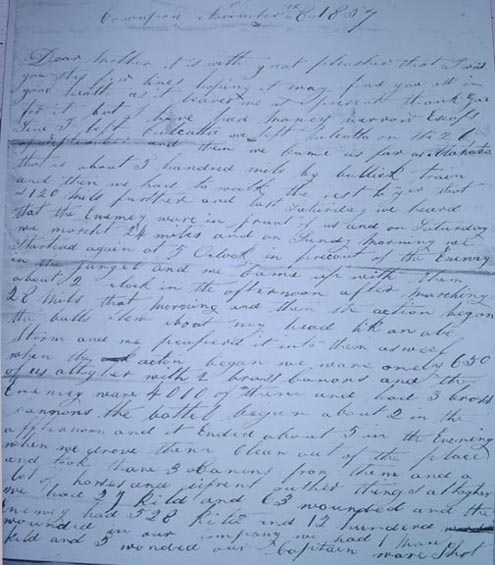 Cawnpon November th 8 1857
Dear mother it is with great pleasher that I rite
you thy few lines hoping it may find you all in
good health as it leaves me at present thank God
for it but I have had maney narrow Escaps
sine I left Calcutta we left Calcutta on the 26
and then we came as far as
that is about 5 hundred mils by bullock train
and then we had to walk the rest
120 mils further and last Saturday we heard
that the Enemey ware in frunt of us and on Saturday
we marcht 24 miles and on Sunday morning we
Started again at 5 Oclock in of the Enemy
in the jungel and we came up with them
about 2 clock in the afternoon after marching
28 mils that morning and then the action began
the balls flew about my head lik an ale
storm and we peapered it into them as well
when the acten began we ware onely 650
of us altogher with 2 brass canons and the
Enemey ware 4000 of them and had 3 brass
cannons the battel began about 2 in the
afternoon and it Ended about 5 in the Evening
when we drove them Clean out of the place
and took thare 3 Canons from them and a
lot of horses and difrent outher things altogher
we had 27 kild and 63 wounded and the
Enemey had 528 kild and 12 hundered
wounded in our company we had 1 man
kild and 5 wonded our Captain ware shot